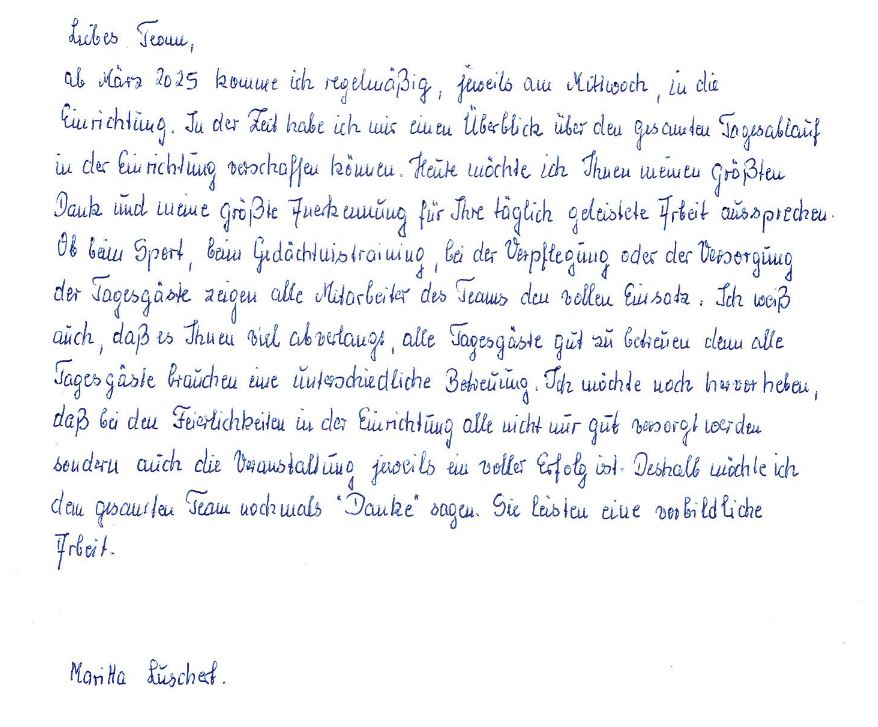 Liebes Team,
ab März 2025 komme ich regelmäßig, jeweils am Mittwoch, in die
Einrichtung. In der Zeit habe ich mir einen Überblick über den gesamten Tagesablauf
in der Einrichtung verschaffen können. Heute möchte ich Ihnen meinen größten
Dank und meine größte Anerkennung für Ihre täglich geleistete Arbeit aussprechen.
Ob beim Sport, beim Gedächtnistraining, bei der Verpflegung oder der Versorgung
der Tagesgäste zeigen alle Mitarbeiter des Teams den vollen Einsatz. Ich weiß
auch, daß es Ihnen viel abverlangt, alle Tagesgäste gut zu betreuen denn alle
Tagesgäste brauchen eine unterschiedliche Betreuung. Ich möchte noch hervorheben,
daß bei den Feierlichkeiten in der Einrichtung alle nicht nur gut versorgt werden
sondern auch die Veranstaltung jeweils ein voller Erfolg ist. Deshalb möchte ich
dem gesamten Team nochmals "Danke" sagen. Sie leisten eine vorbildliche
Arbeit.
Maritta Luschert.